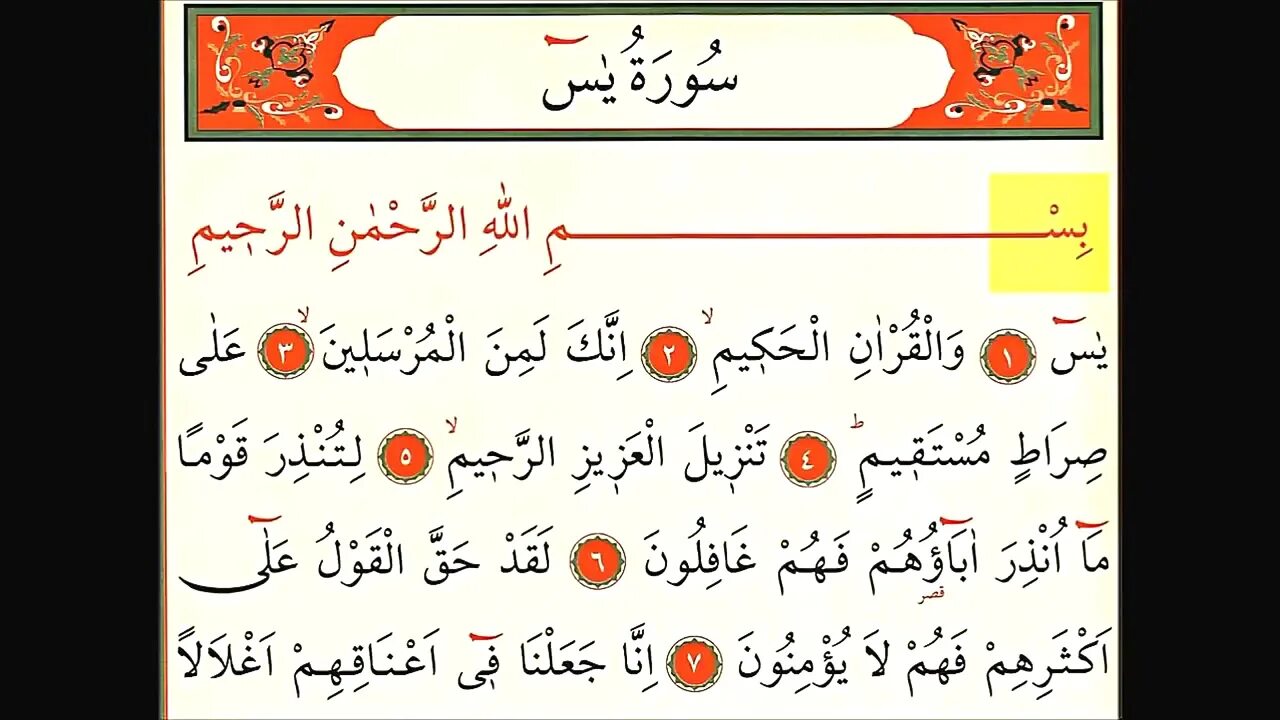 سُورَةُ يٰسٓ
بِسْمِ اللّٰهِ الرَّحْمٰنِ الرَّح۪يمِ
يٰسٓ ١ وَالْقُرْاٰنِ الْحَك۪يمِۙ ٢ اِنَّكَ لَمِنَ الْمُرْسَل۪ينَۙ ٣ عَلٰى
صِرَاطٍ مُسْتَق۪يمٍۜ ٤ تَنْز۪يلَ الْعَز۪يزِ الرَّح۪يمِۙ ٥ لِتُنْذِرَ قَوْمًا
مَٓا اُنْذِرَ اٰبَٓاؤُ۬هُمْ فَهُمْ غَافِلُونَ ٦ لَقَدْ حَقَّ الْقَوْلُ عَلٰٓى
قصر
اَكْثَرِهِمْ فَهُمْ لَا يُؤْمِنُونَ ٧ اِنَّا جَعَلْنَا ف۪ٓي اَعْنَاقِهِمْ اَغْلَالًا